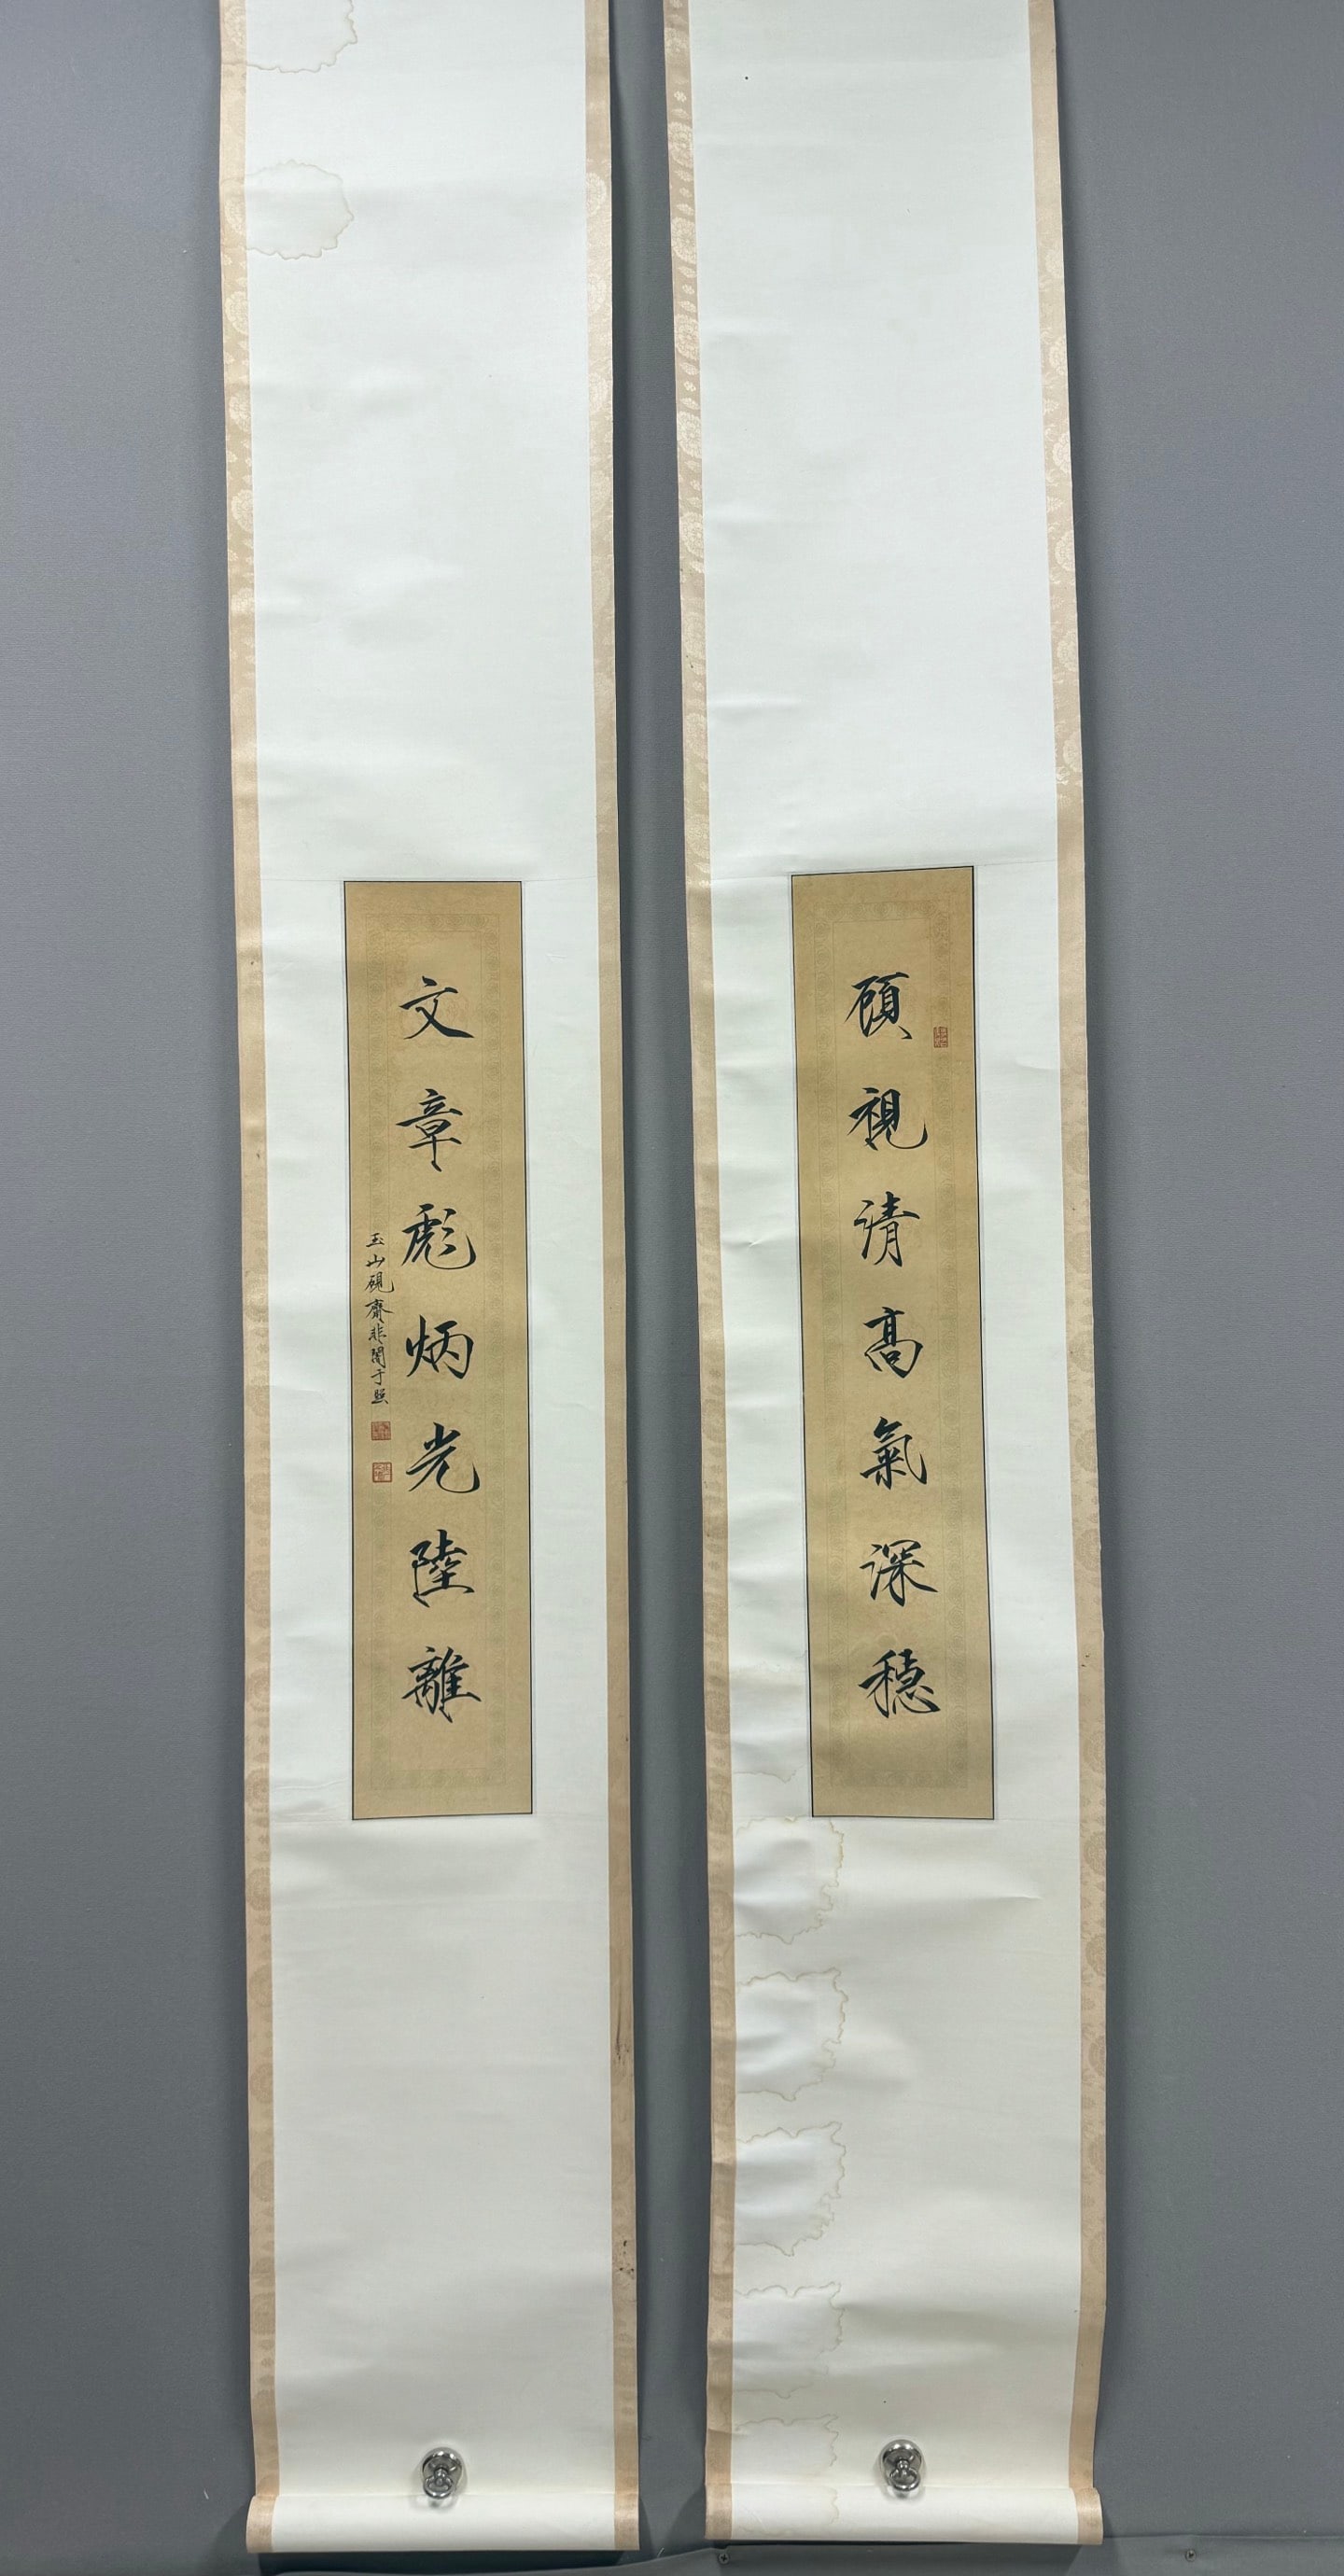 顧視清高氣深穩
文章彪炳光陸離
玉山硯齋非闇于照